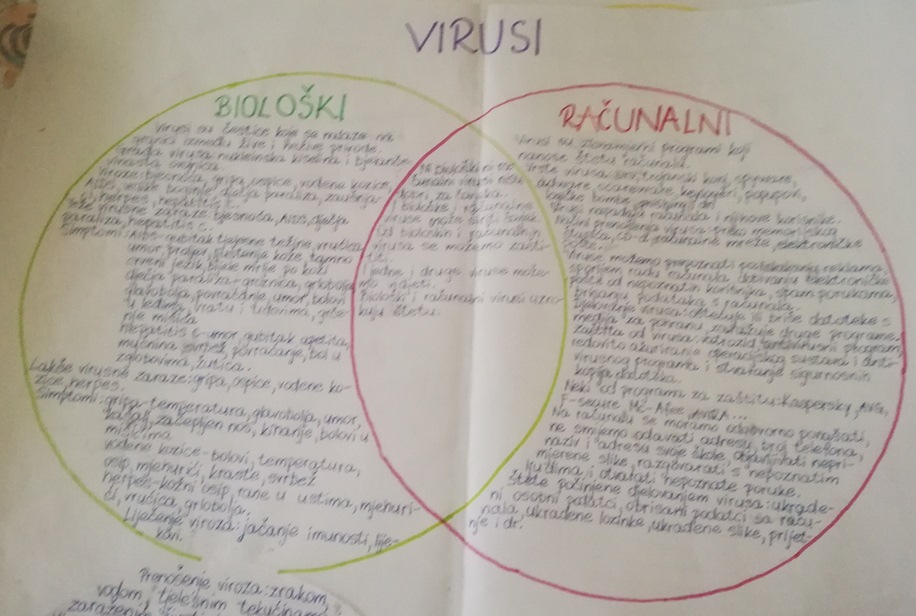 VIRUSI
BIOLOŠKI
Virusi su čestice koje se nalaze na
granici između žive i nežive prirode.
Građa virusa nukleinska kiselina i bjelanče-
vinasta ovojnica
Viroze: bjesnoća, gripa, ospice, vodene kozice,
AIDS, velike boginje, dječja paraliza, zaušnja-
ci, herpes, hepatitis C.
Teže virusne zaraze: bjesnoća, AIDS, dječja
paraliza, hepatitis C.
Simptomi: AIDS-gubitak tjelesne težine, vrućica,
umor, proljev, kože, tamno
crveni jezik, bijele mrlje po koži
dječja paraliza-groznica, grlobolja
glavobolja, povraćanje, umor, bolovi
u leđima, vratu i udovima, grče-
nje mišića
hepatitis C-umor, gubitak apetita,
mučnina, svrbež, povraćanje, bol u
zglobovima, žutica.
Lakše virusne zaraze: gripa, ospice, vodene ko-
zice, herpes.
Simptomi: gripa-temperatura, glavobolja, umor,
kašalj, začepljen nos, kihanje, bolovi u
mišićima
vodene kozice-bolovi, temperatura,
osip, mjehurići, kraste, svrbež
herpes-kožni osip, rane u ustima, mjehuri-
ći, vrućica, grlobolja.
Liječenje viroza: jačanje imunosti, lije-
kovi.
Prenošenje viroza: zrakom,
vodom, tjelesnim tekućinama
Ni biološki ni ra-
čunalni virusi nisu
dobri za čovjeka.
I biološke i računalne
viruse može širiti čovjek
Od bioloških i računalnih
virusa se možemo zašti-
titi.
I jedne i druge viruse može-
mo
Biološki i računalni virusi uzro-
kuju štetu.
RAČUNALNI
Virusi su zlonamjerni programi koji
nanose štetu računalu.
Vrste virusa: crvi, trojanski konj, spyware,
adware, scareware, keylogeri, popupovi,
logičke bombe
Virusi napadaju računala i njihove korisnike.
Načini prenošenja virusa: preko memorijskog
štapića, CD-a, računalne mreže, elektroničke
pošte.
Viruse možemo prepoznati reklama,
sporijem radu računala, dobivanju elektroničke
pošte od nepoznatih korisnika, spam porukama,
brisanju podataka s računala.
Djelovanje virusa: oštećuje ili briše datoteke s
medija za pohranu, zaražuje druge programe.
Zaštita od virusa: antivirusni program,
redovito ažuriranje operacijskog sustava i anti-
virusnog programa i stvaranje sigurnosnih
kopija datoteka.
Neki od programa za zaštitu: Kaspersky, AVG,
F-secure, Mc-Afee, AVIRA...
Na računalu se moramo odgovorno ponašati,
ne smijemo odavati adresu, broj telefona,
naziv i adresu svoje škole, objavljivati nepri-
mjerene slike, razgovarati s nepoznatim
ljudima i otvarati nepoznate poruke.
Štete počinjene djelovanjem virusa: ukrade-
ni osobni podatci, obrisani podatci sa raču-
nala, ukradene lozinke, ukradene slike, prijet-
nje i dr.